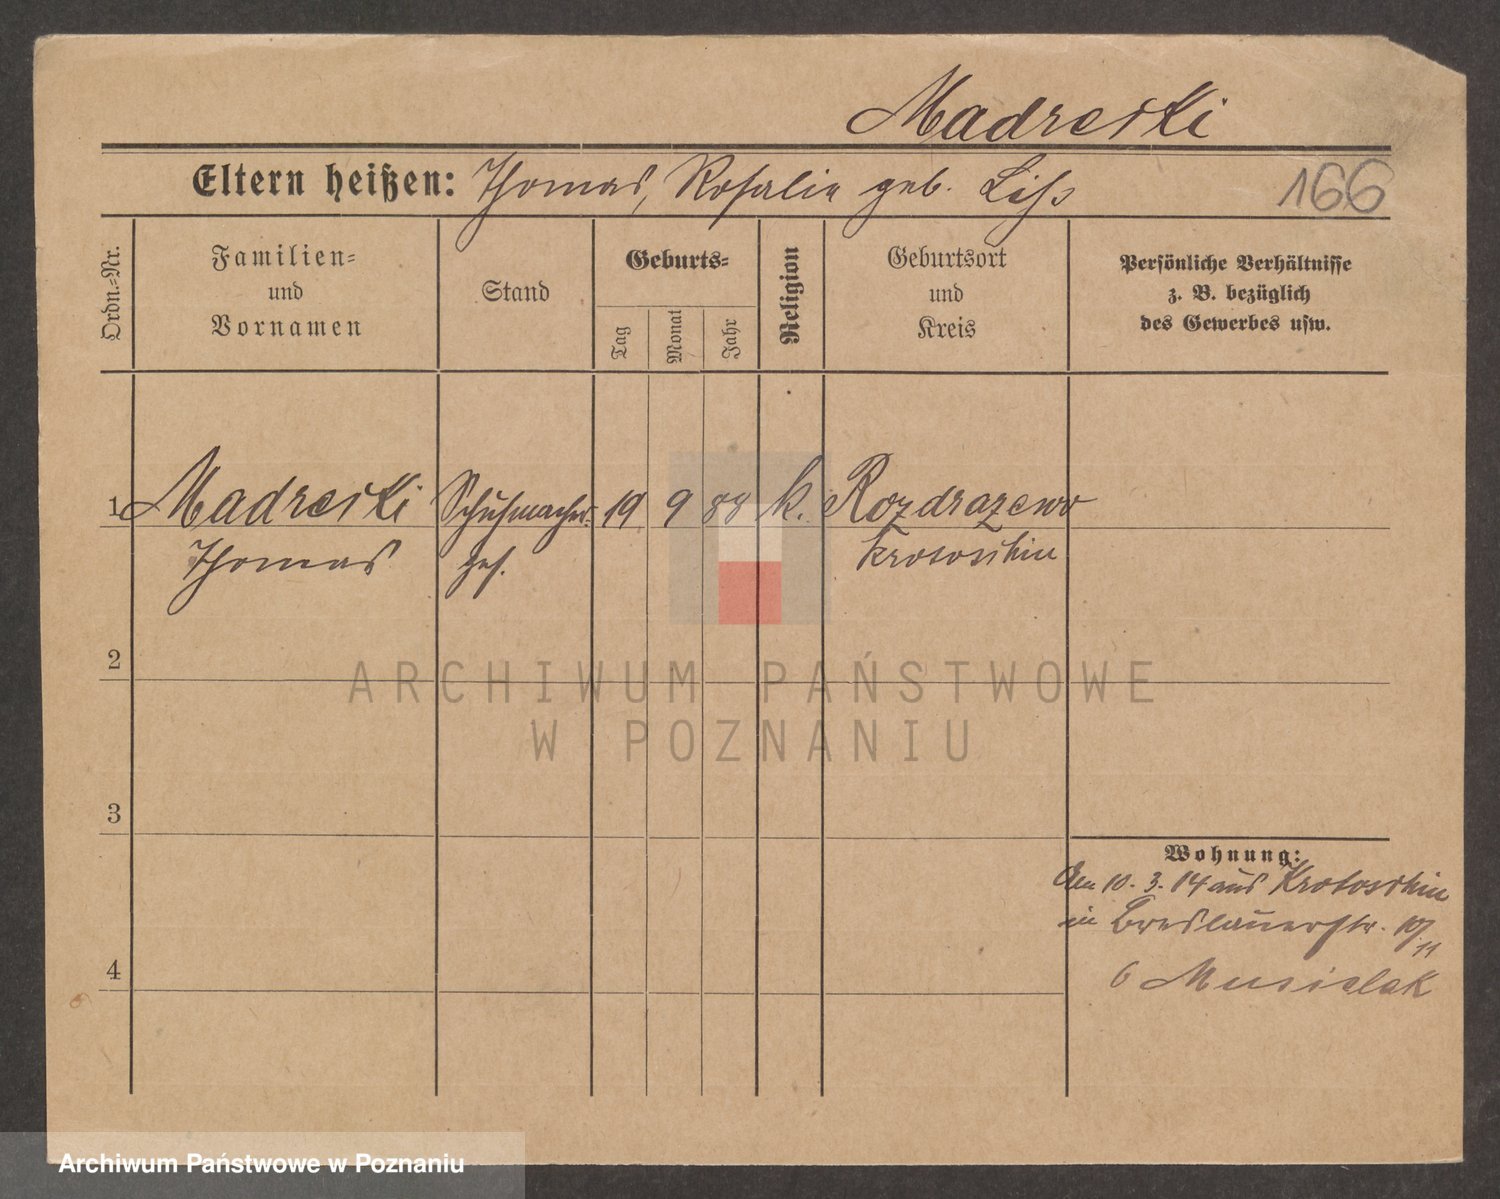 Madreski
Eltern heißen: Thomas, Rosalie geb. Liss
166
Ordn.=Nr.
Familien=
und
Vornamen
Stand
Geburts=
Tag
Monat
Jahr
Religion
Geburtsort
und
Kreis
Persönliche Verhältnisse
z. B. bezüglich
des Gewerbes usw.
1 Madreski Schuhmacher 19 9 88 k. Rozdrazewo
Thomas ges. Krotoschin
2
3
4
Wohnung:
Am 10. 3. 14 aus Krotoschin
in Breslauerstr. 10/11
b Musialak
ARCHIWUM PAŃSTWOWE
W POZNANIU
Archiwum Państwowe w Poznaniu